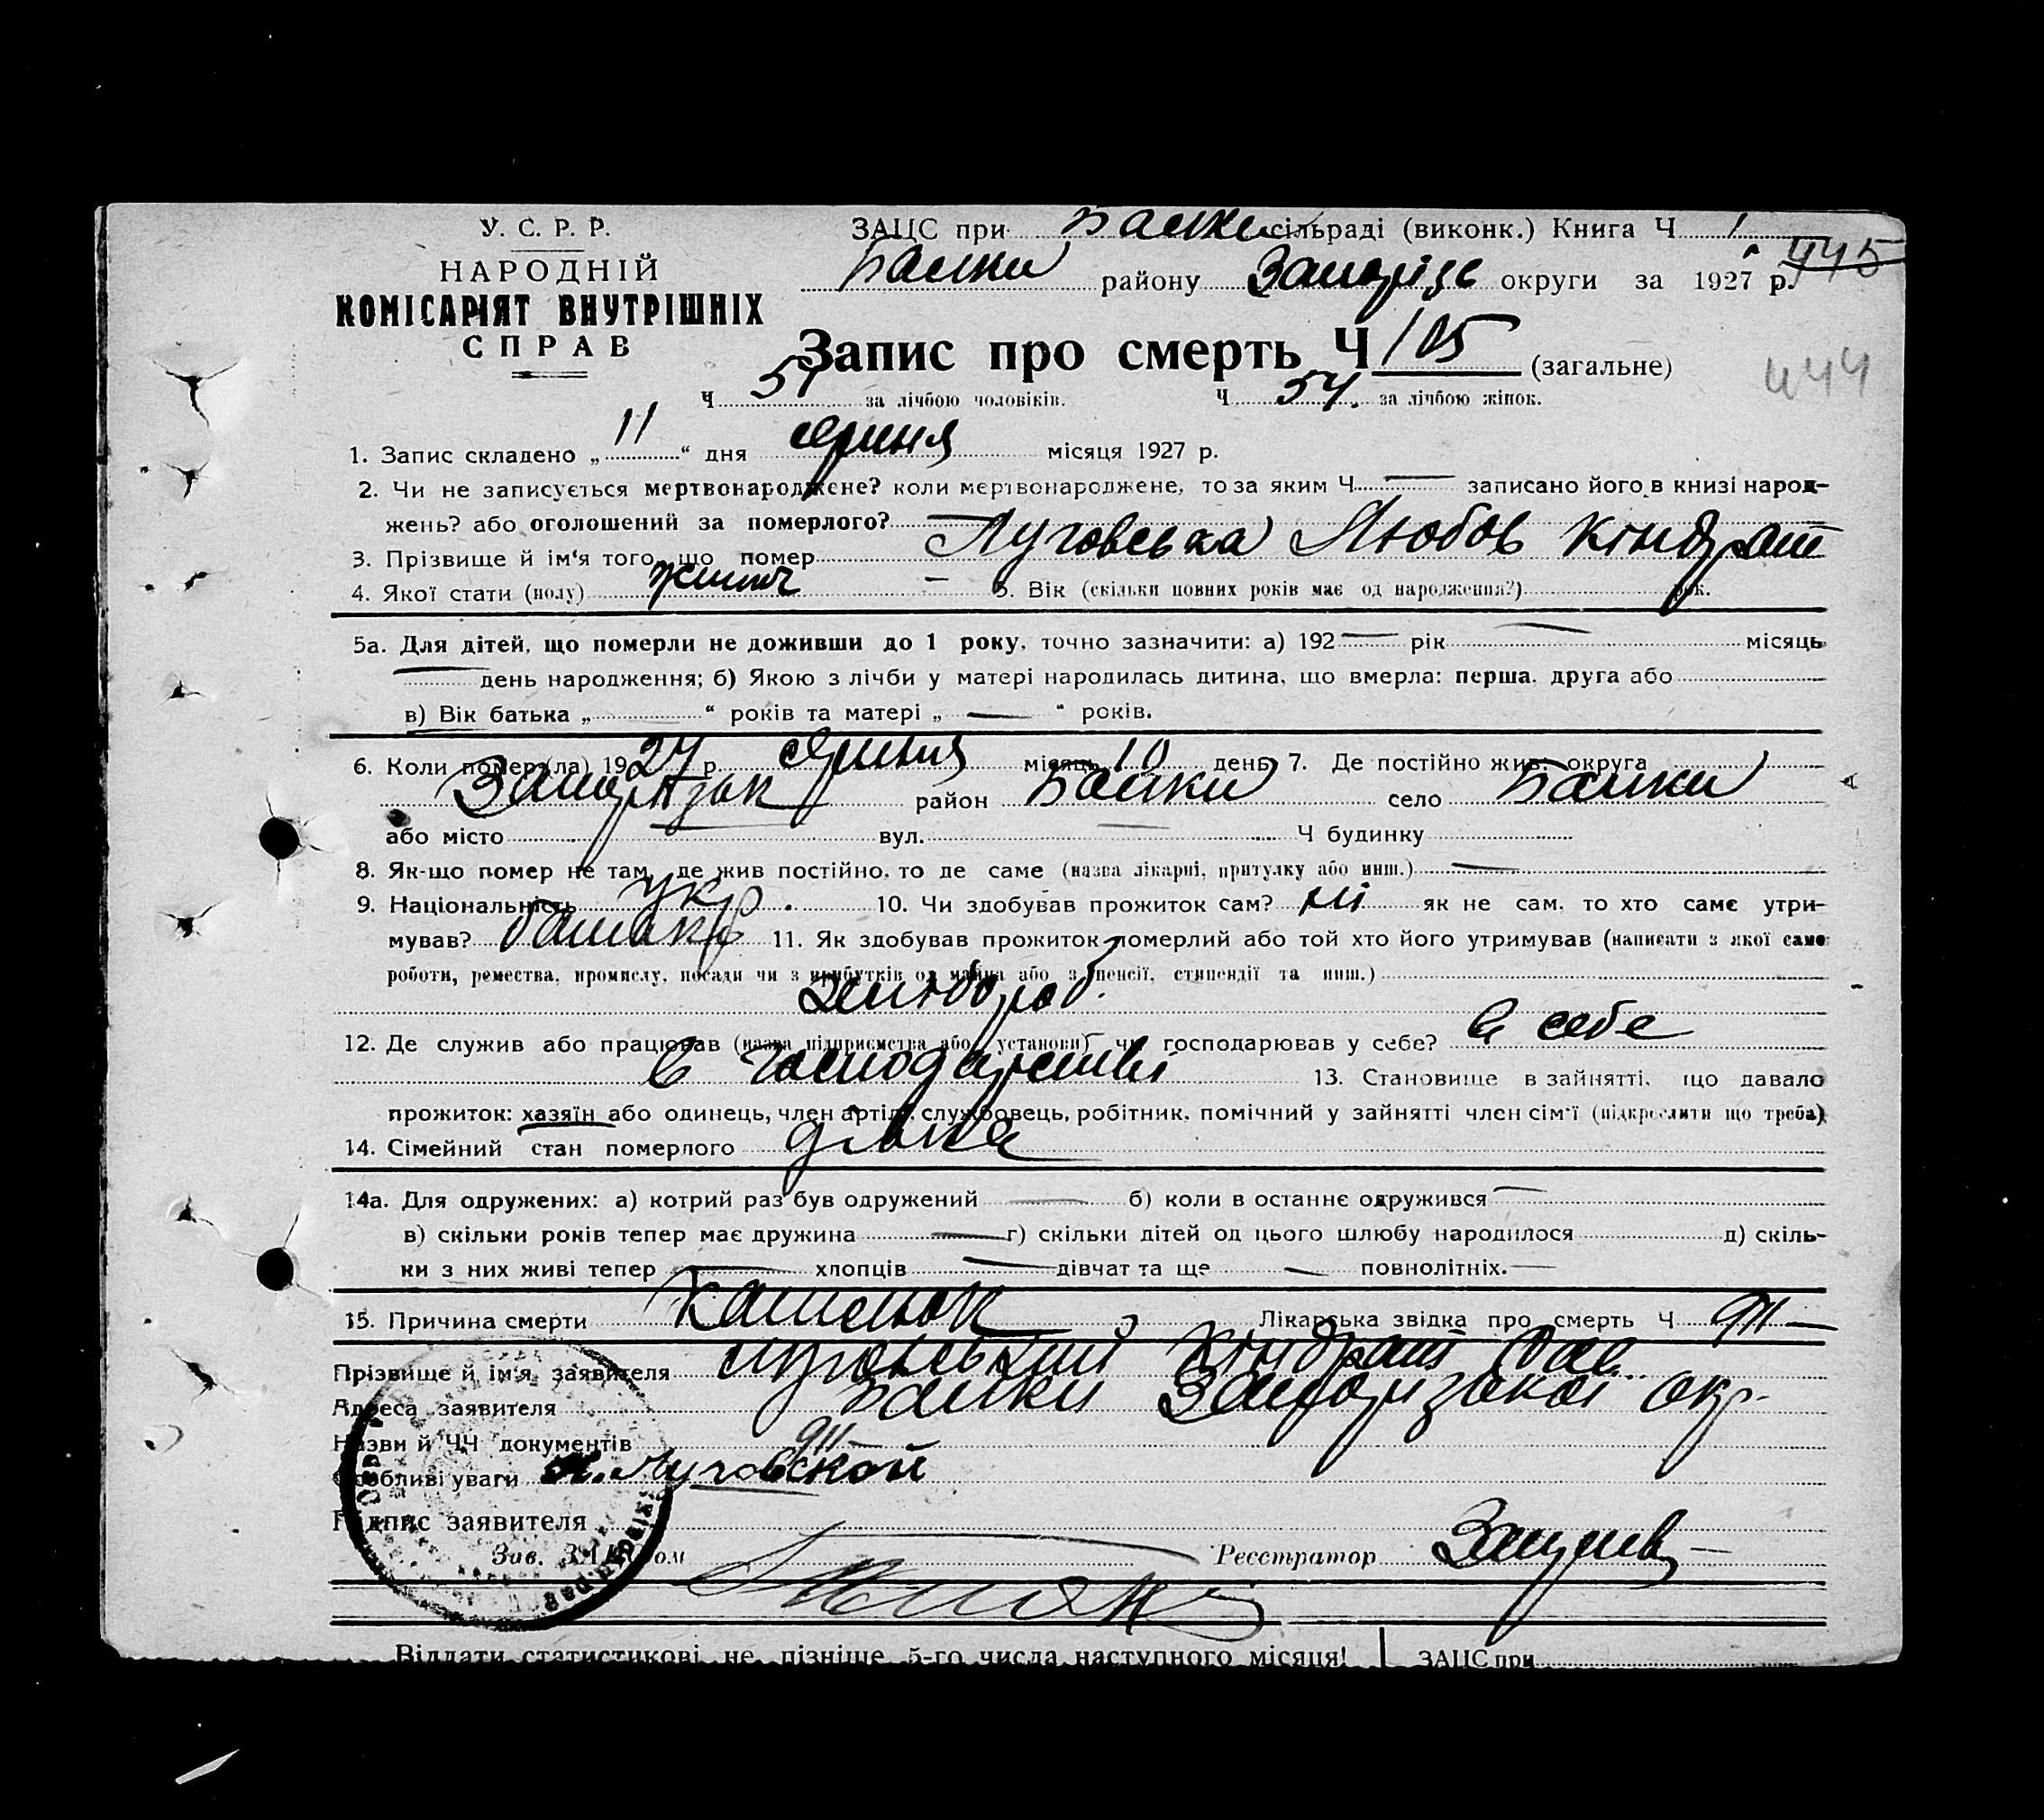 У. С. Р. Р.
НАРОДНІЙ
КОМІСАРІЯТ ВНУТРІШНІХ
СПРАВ
ЗАЦС при Балки сільраді (виконк.) Книга Ч 1
445
Балки району Запорізь округи за 1927 р.
Запис про смерть Ч 105 (загальне)
444
Ч 51 за лічбою чоловіків. Ч 54. за лічбою жінок.
1. Запис складено „ 11 “ дня серпня місяця 1927 р.
2. Чи не записується мертвонароджене? коли мертвонароджене, то за яким Ч — записано його в книзі народ-
жень? або оголошений за померлого? —
3. Прізвище й ім'я того, що помер Луговська Любов Кіндрат
4. Якої стати (полу) жіноч – 5. Вік (скільки повних років має од народження?) рок.
5а. Для дітей, що померли не доживши до 1 року, точно зазначити: а) 192 — рік — місяць
— день народження; б) Якою з лічби у матері народилась дитина, що вмерла: перша, друга або
в) Вік батька „ “ років та матері „ — “ років.
6. Коли помер (ла) 1927 р. серпня місяць 10 день 7. Де постійно жив: округа
район Балки село Балки
або місто — вул. — Ч будинку
8. Як-що помер не там, де жив постійно, то де саме (назва лікарні, притулку або инш.) —
9. Національність укр. 10. Чи здобував прожиток сам? ні як не сам, то хто саме утри-
мував? 11. Як здобував прожиток померлий або той хто його утримував (написати з якої саме
роботи, ремества, промислу, посади чи з прибутків од майна або з пенсії, стипендії та инш.)
хлібороб.
12. Де служив або працював (назва підприємства або установи) чи господарював у себе? в себе
в господарстві 13. Становище в зайнятті, що давало
прожиток: хазяїн або одинець, член артілі, службовець, робітник, помічний у зайнятті член сім'ї (підкреслити що треба)
14. Сімейний стан померлого дівка
14а. Для одружених: а) котрий раз був одружений — б) коли в останнє одружився —
в) скільки років тепер має дружина — г) скільки дітей од цього шлюбу народилося д) скіль-
ки з них живі тепер — хлопців — дівчат та ще — повнолітніх. —
15. Причина смерти Лікарська звідка про смерть Ч 911 —
Прізвище й ім'я заявителя Луговський Кіндрат
Адреса заявителя Балки Запорізької окр.
Назви й ЧЧ документів 911
Особливі уваги Луговской
Підпис заявителя
Зав. ЗАЦС'ом Реєстратор
Віддати статистикові не пізніше 5-го числа наступного місяця! ЗАЦС при